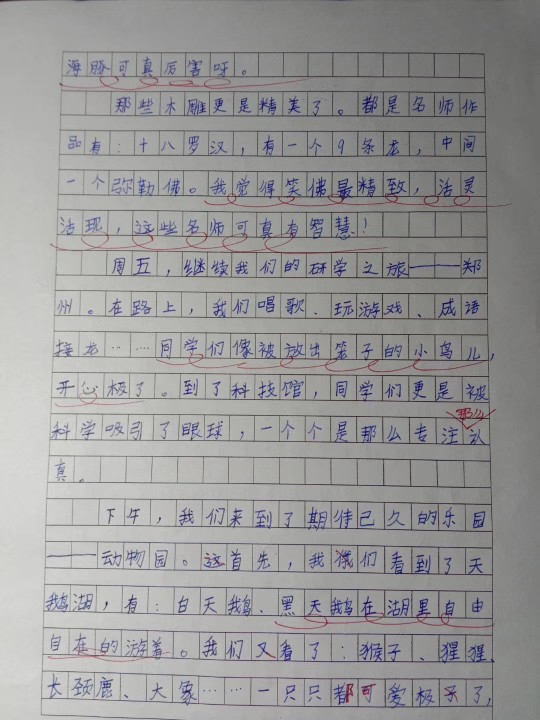 海豚可真厉害呀。
那些木雕更是精美了。都是名师作
品有：十八罗汉，有一个9条龙，中间
一个弥勒佛。我觉得笑佛最精致，活灵
活现，这些名师可真有智慧！
周五，继续我们的研学之旅——郑
州。在路上，我们唱歌、玩游戏、成语
接龙……同学们像被放出笼子的小鸟儿，
开心极了。到了科技馆，同学们更是被
那么
科学吸引了眼球，一个个是那么专注认
真。
下午，我们来到了期待已久的乐园
——动物园。这首先，我们看到了天
鹅湖，有：白天鹅、黑天鹅在湖里自由
自在的游着。我们又看了：猴子、猩猩、
长颈鹿、大象……一只只都可爱极了，